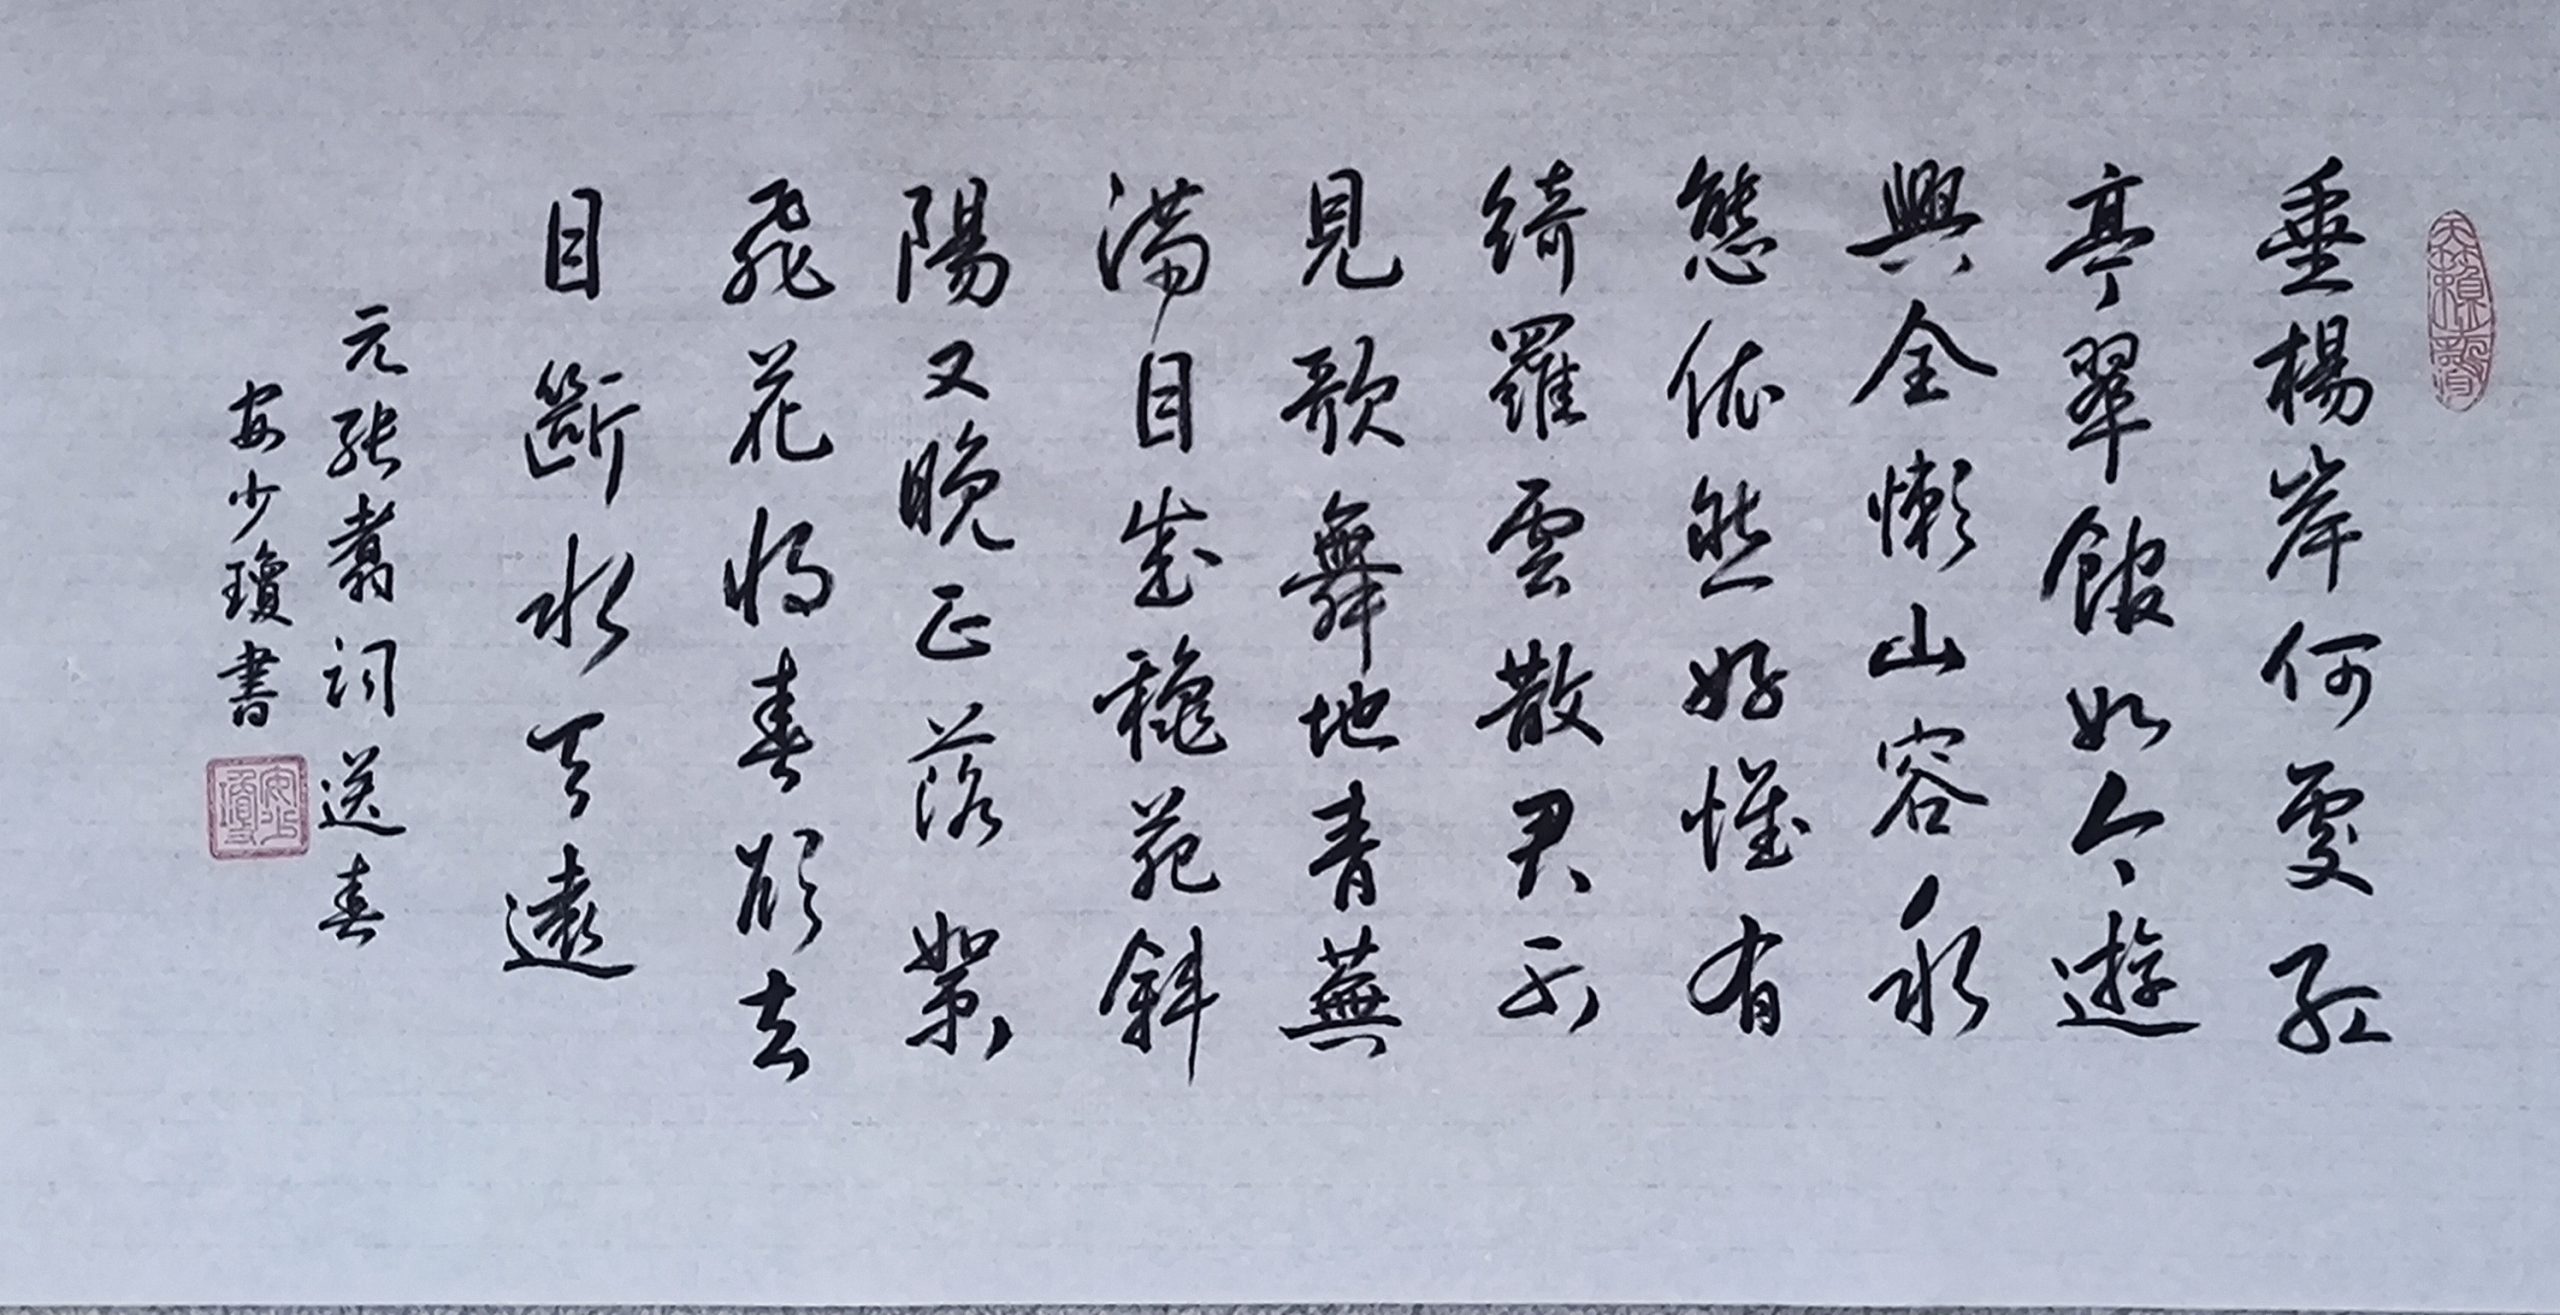 垂楊岸何處紅
亭翠館如今遊
興全懶山容水
態依然好惟有
綺羅雲散君不
見歌舞地青蕪
滿目成穐苑斜
陽又晚正落絮
飛花將春欲去
目斷水天遠
元張翥詞送春
安少瓊書
安少瓊